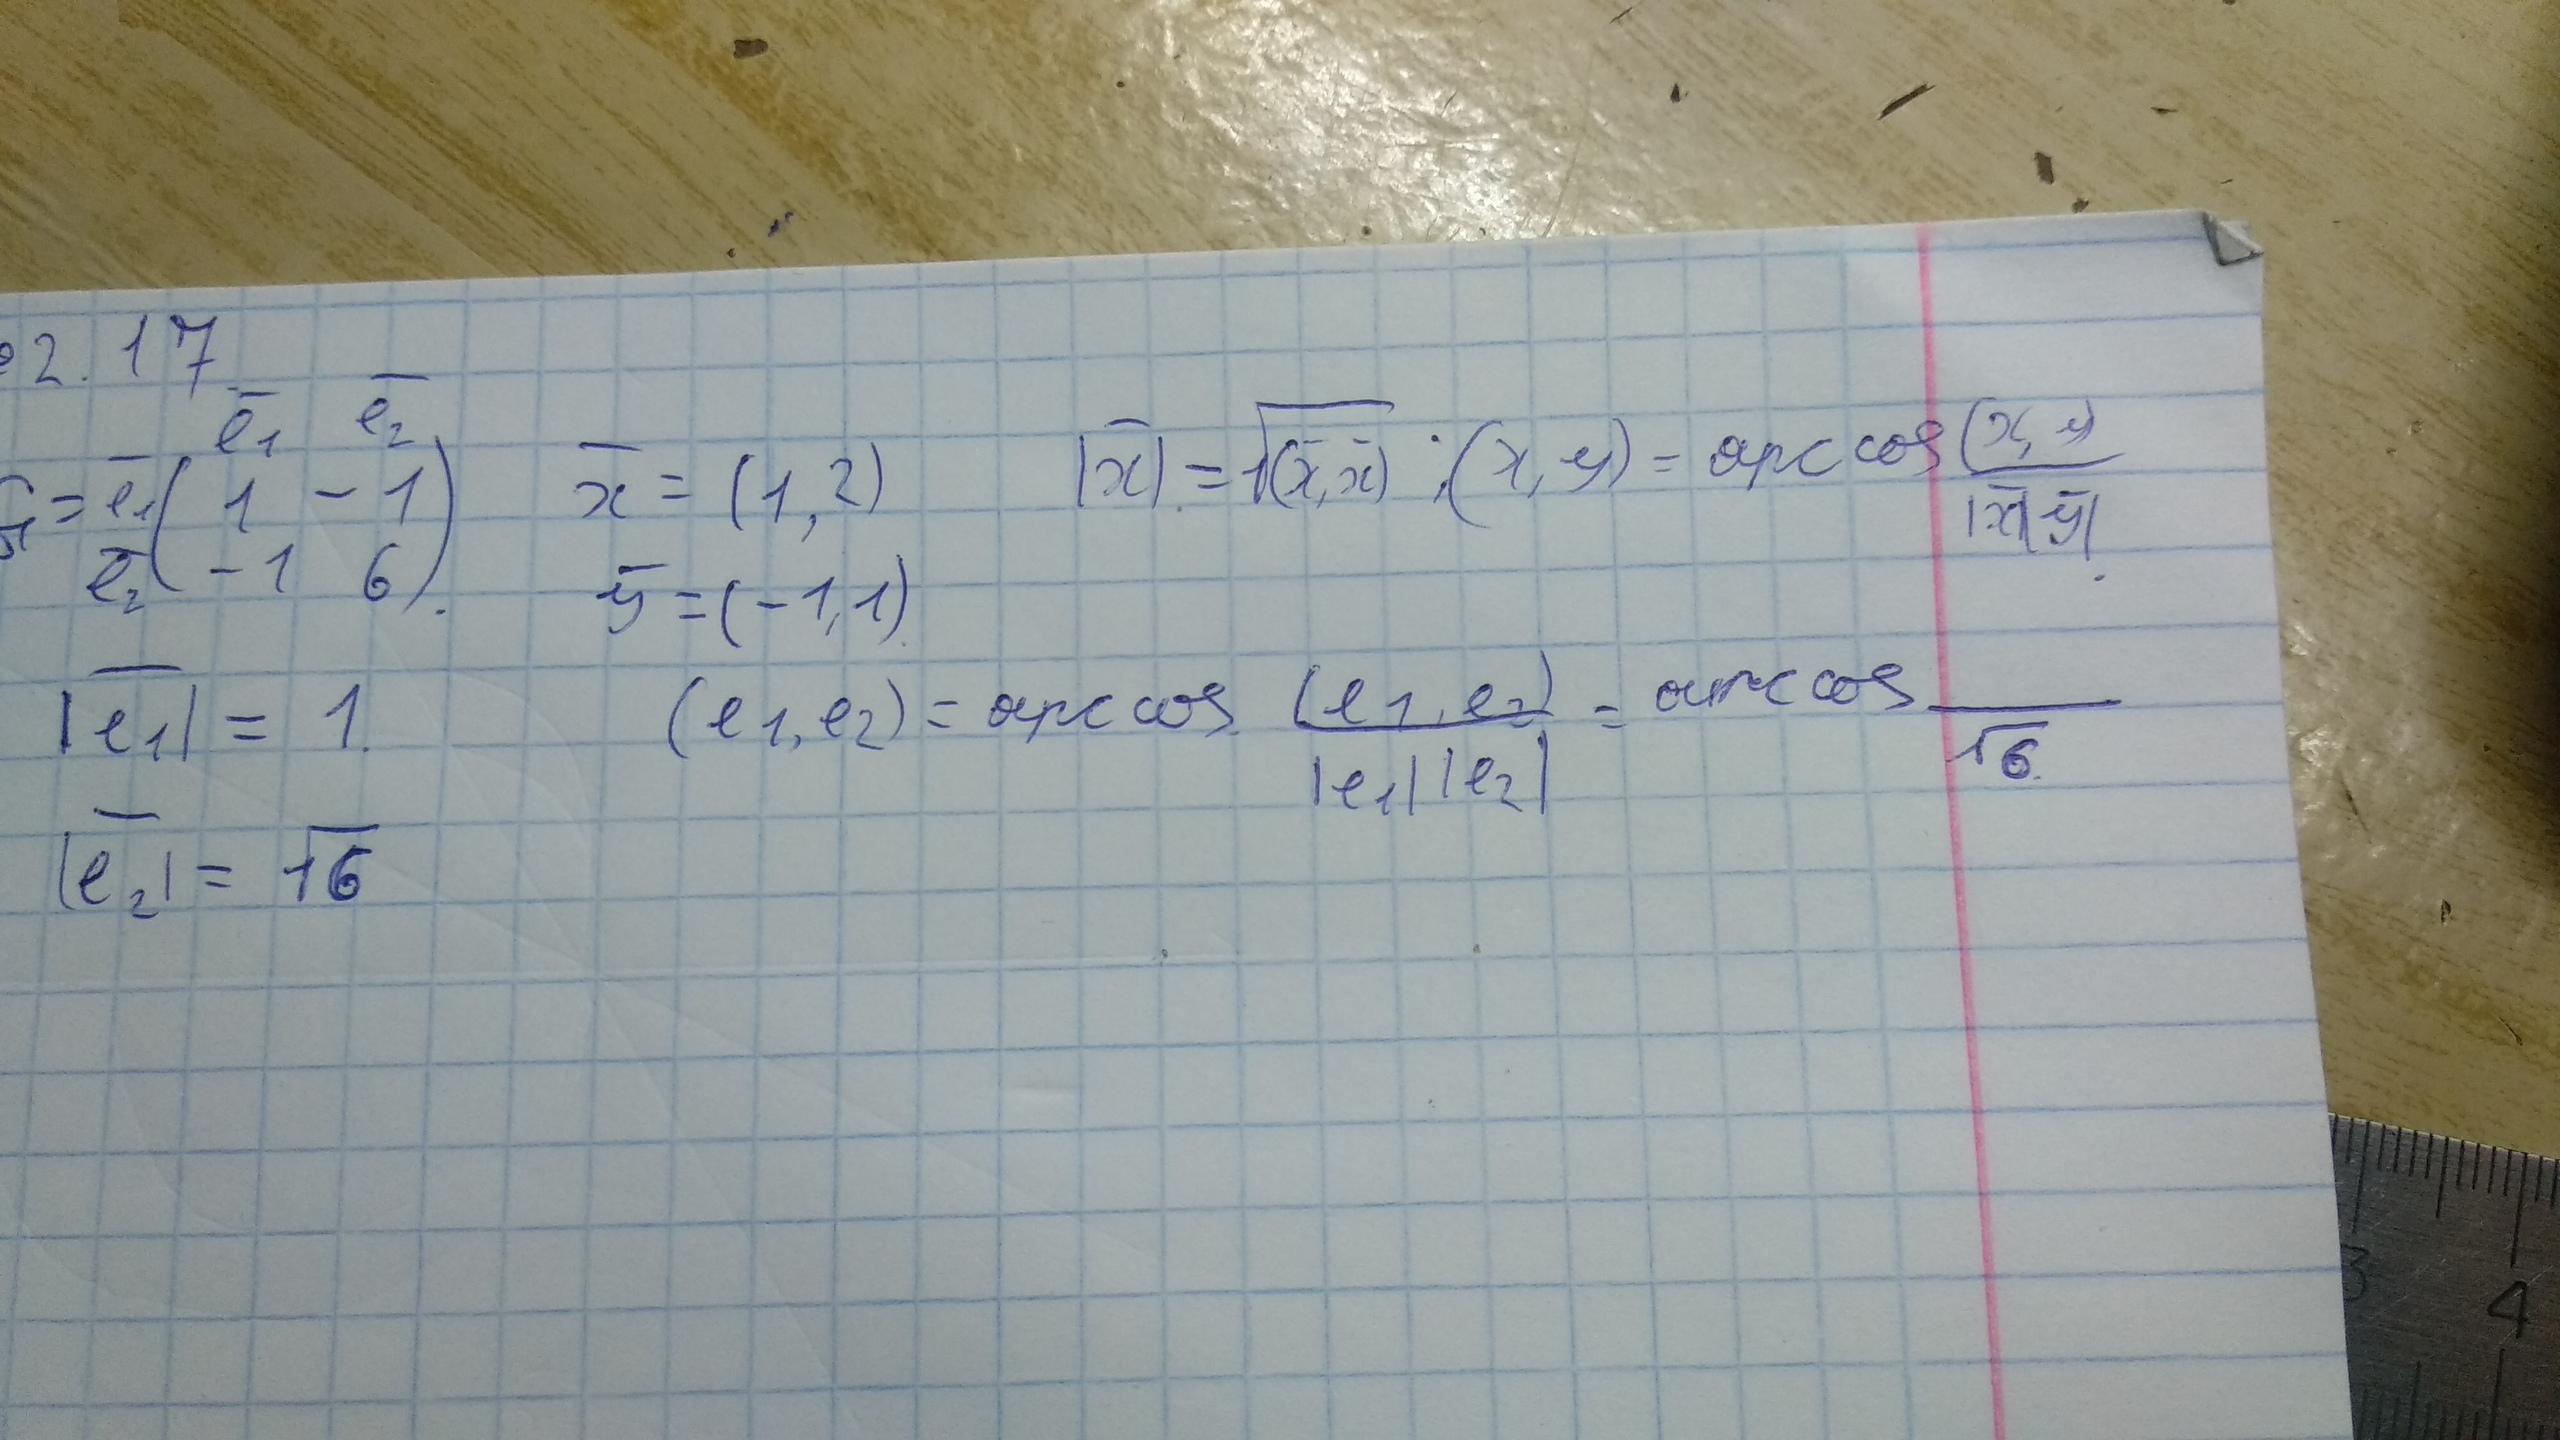 2.17
e̅₁ e̅₂
G = e̅₁ ( 1 -1
e̅₂ -1 6 ).
x̅ = (1,2)
y̅ = (-1,1)
|x̅| = √(x̅,x̅) ; (x,y) = arccos (x,y)/|x̅||y̅|.
|e̅₁| = 1.
(e1,e2) = arccos (e1,e2)/|e1||e2| = arccos /√6.
|e̅₂| = √6
3 4